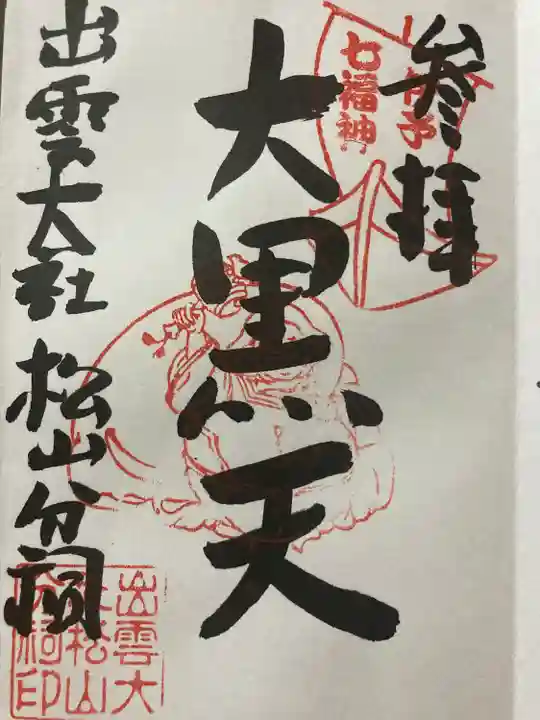 参拝
七福神
大黒天
出雲大社松山分祠
出雲大
社松山
分祠印